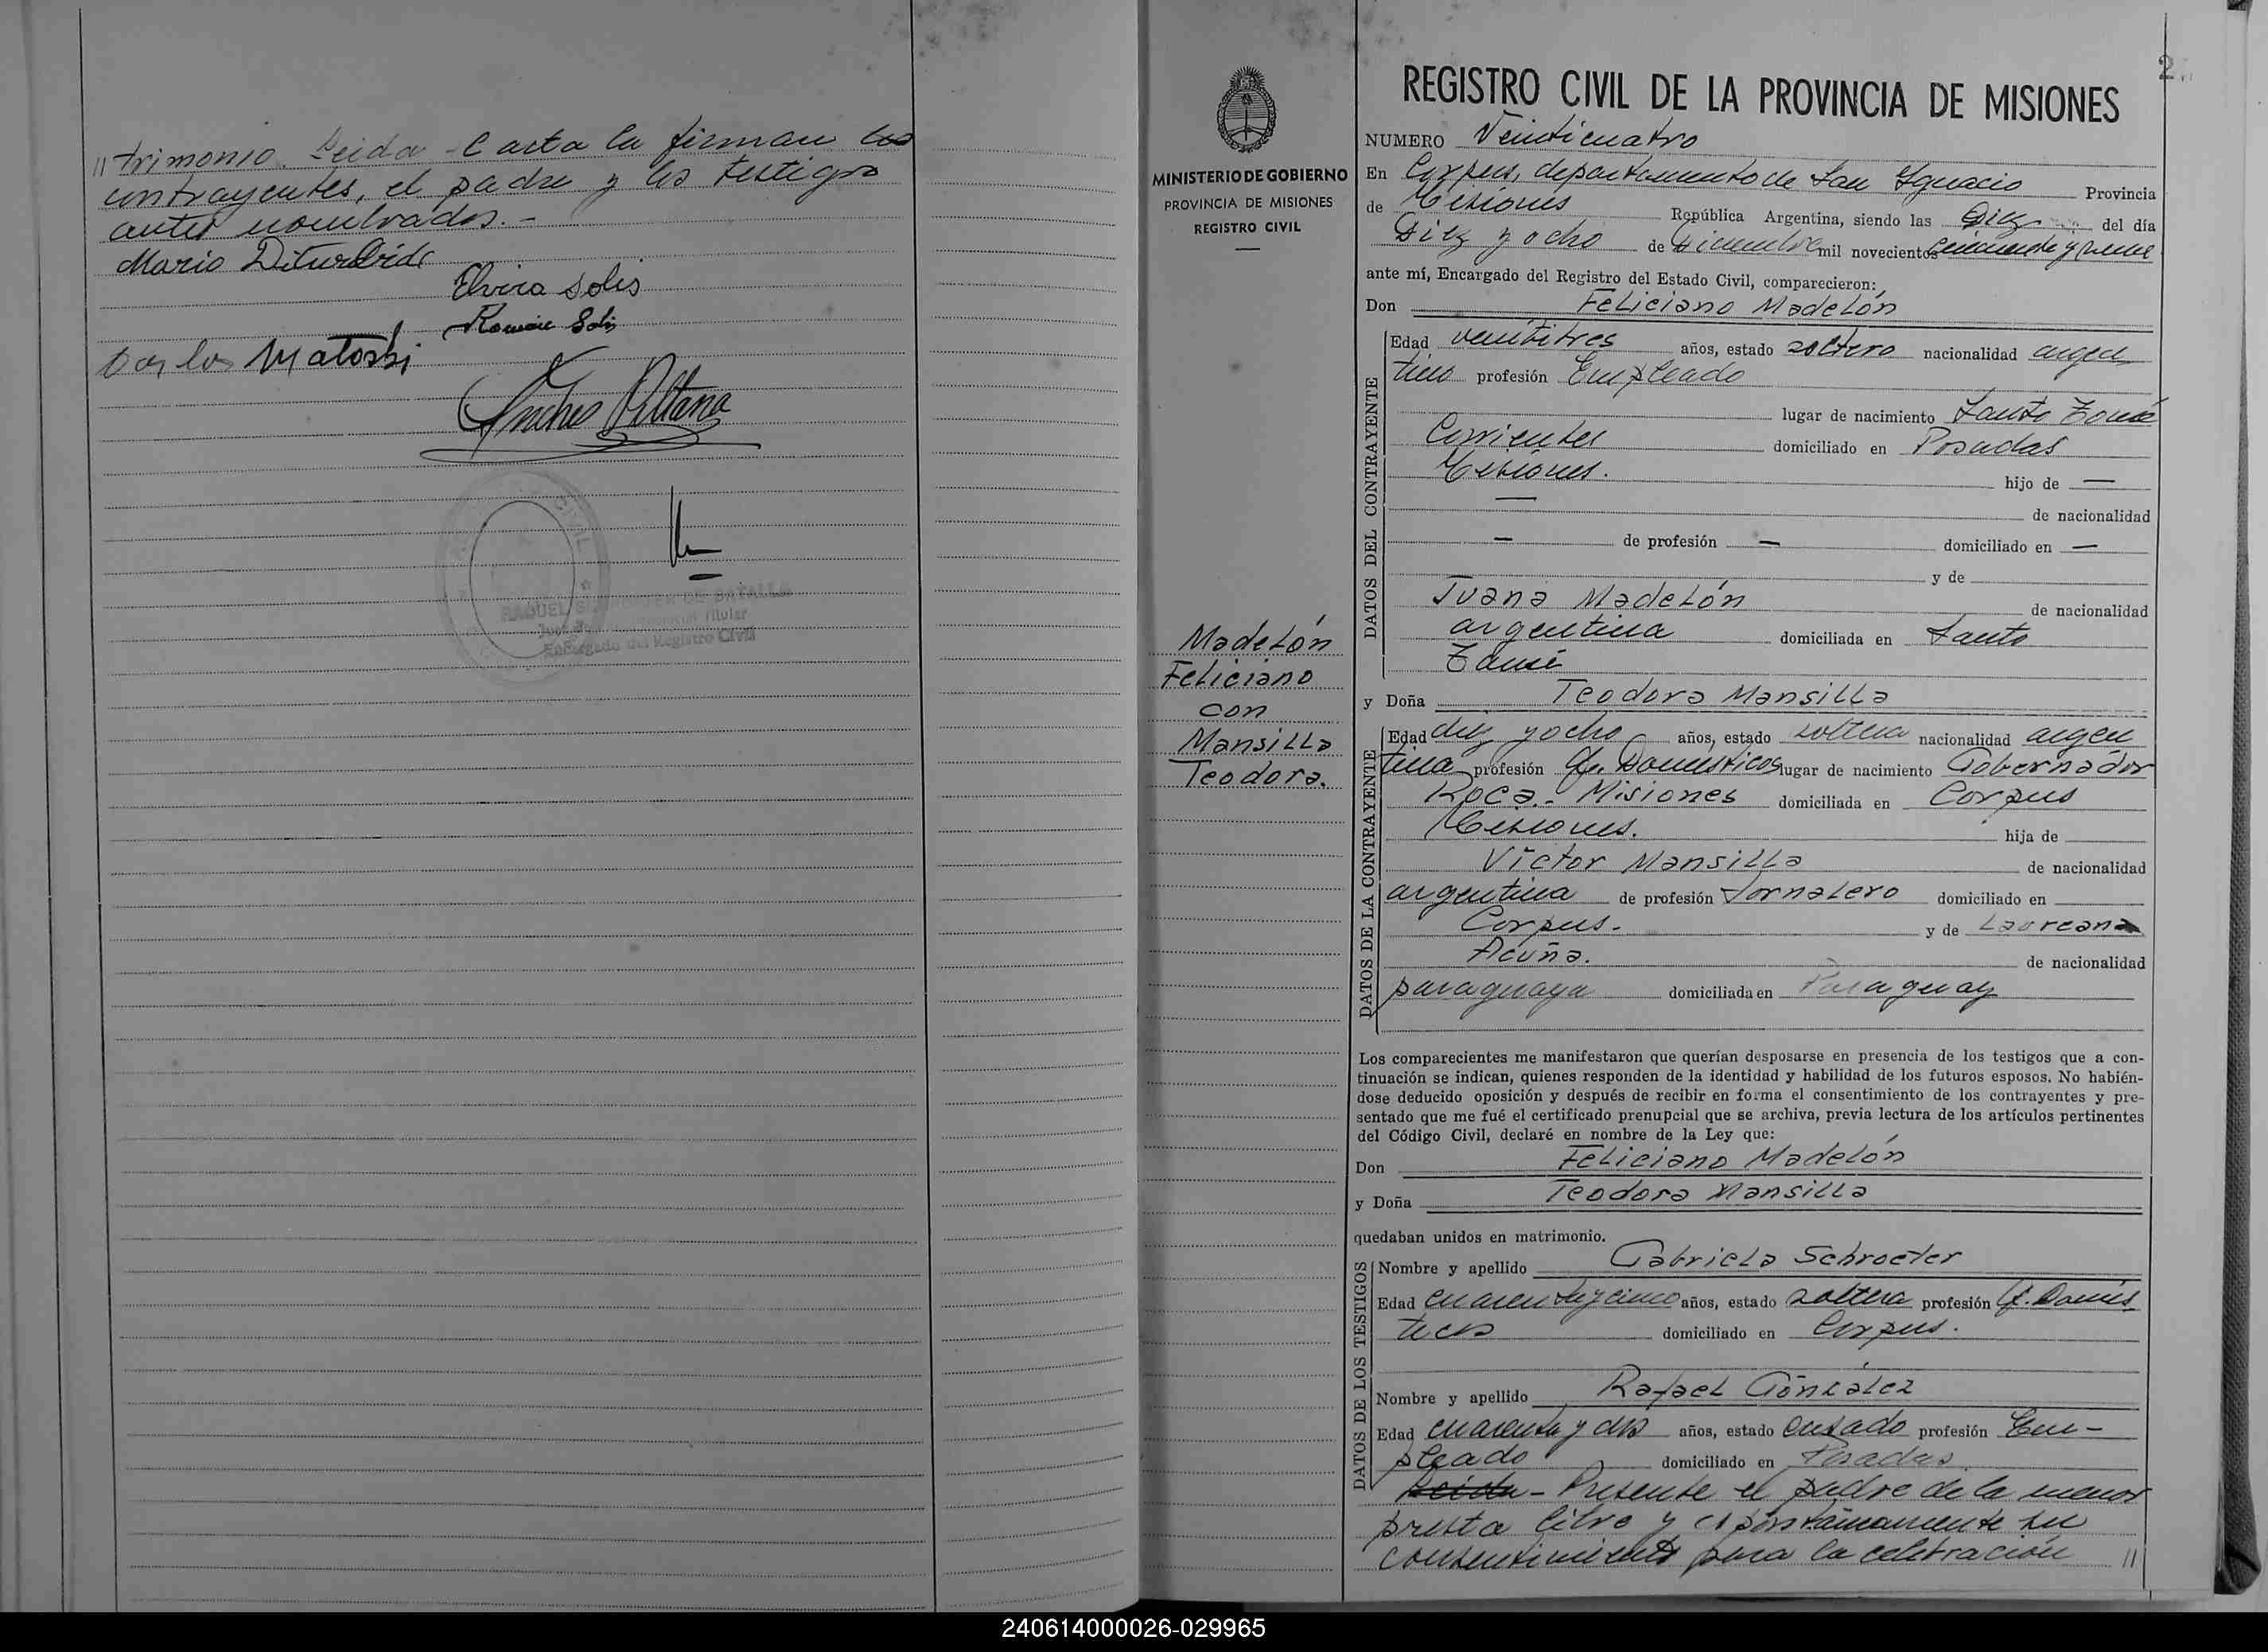 // trimonio. Leida el acta la firman los
contrayentes, el padre y los testigos
antes nombrados.-
Mario
Elvira Solis
Solis
Carlos
REGISTRO CIVIL DE LA PROVINCIA DE MISIONES
MINISTERIO DE GOBIERNO
PROVINCIA DE MISIONES
REGISTRO CIVIL
Madelón
Feliciano
con
Mansilla
Teodora.
NUMERO Veinticuatro
En Corpus, departamento de San Ignacio Provincia
de Misiones República Argentina, siendo las Diez del día
Diez y ocho de Diciembre mil novecientos cincuenta y nueve
ante mí, Encargado del Registro del Estado Civil, comparecieron:
Don Feliciano Madelón
DATOS DEL CONTRAYENTE
Edad veintitres años, estado soltero nacionalidad argen
tino profesión Empleado
lugar de nacimiento Santo Tomé
Corrientes domiciliado en Posadas
Misiones. hijo de —
— de nacionalidad
— de profesión — domiciliado en —
y de
Juana Madelón de nacionalidad
argentina domiciliada en Santo
Tomé
y Doña Teodora Mansilla
DATOS DE LA CONTRAYENTE
Edad diez y ocho años, estado soltera nacionalidad argen
tina profesión Q. Domésticos lugar de nacimiento Gobernador
Roca.- Misiones domiciliada en Corpus
Misiones. hija de
Víctor Mansilla de nacionalidad
argentina de profesión Jornalero domiciliado en
Corpus. y de Laureana
Acuña. de nacionalidad
paraguaya domiciliada en Paraguay
Los comparecientes me manifestaron que querían desposarse en presencia de los testigos que a con-
tinuación se indican, quienes responden de la identidad y habilidad de los futuros esposos. No habién-
dose deducido oposición y después de recibir en forma el consentimiento de los contrayentes y pre-
sentado que me fué el certificado prenupcial que se archiva, previa lectura de los artículos pertinentes
del Código Civil, declaré en nombre de la Ley que:
Don Feliciano Madelón
y Doña Teodora Mansilla
quedaban unidos en matrimonio.
DATOS DE LOS TESTIGOS
Nombre y apellido Gabriela Schroeter
Edad cuarenta y cinco años, estado soltera profesión Q. Domés
ticos domiciliado en Corpus.
Nombre y apellido Rafael González
Edad cuarenta y dos años, estado casado profesión Em-
pleado domiciliado en Posadas
Leida - Presente el padre de la menor
presta libre y espontáneamente su
consentimiento para la celebración //
240614000026-029965